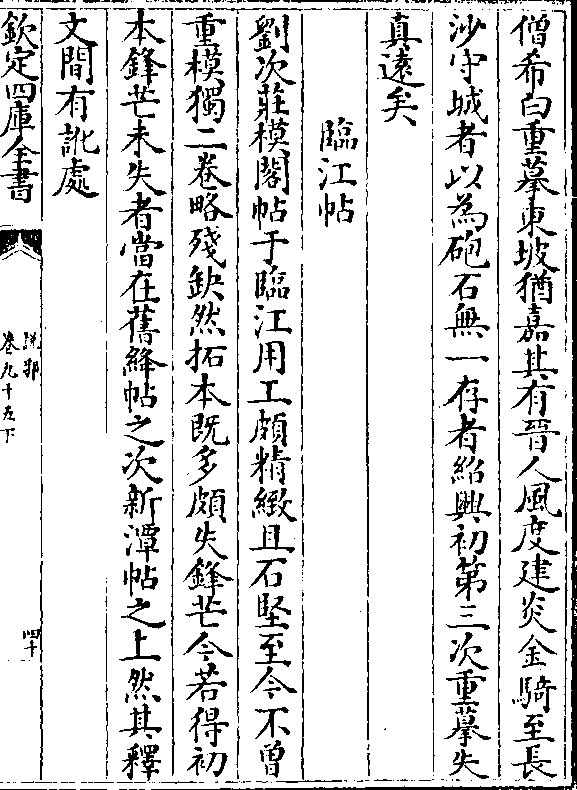 僧希白重摹東坡猶嘉其有晉人風度建炎金騎至長
沙守城者以為砲石無一存者紹興初第三次重摹失
真遠矣
臨江帖
劉次莊模閣帖于臨江用工頗精緻且石堅至今不曽
重模獨二卷略殘缺然拓本既多頗失鋒芒今若得初
本鋒芒未失者當在舊絳帖之次新潭帖之上然其釋
文間有訛處
欽定四庫全書
說郛
卷九十五下
四十